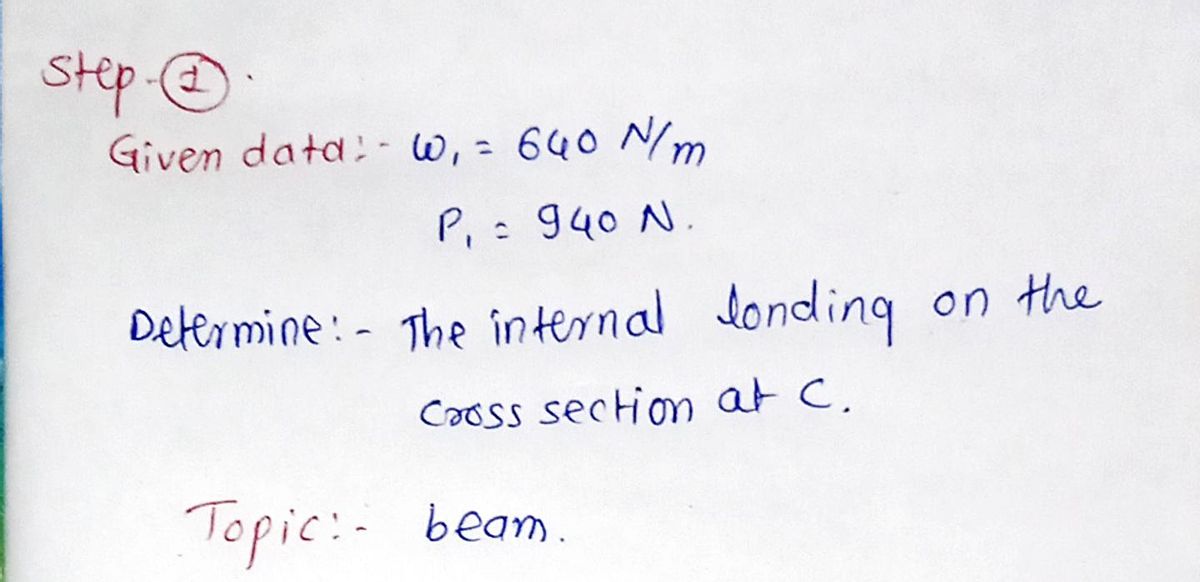 Step-①.
Given data:- W₁ = 640 N/m
P₁ = 940 N.
Determine:- The internal londing on the
Cross section at C.
Topic:- beam.